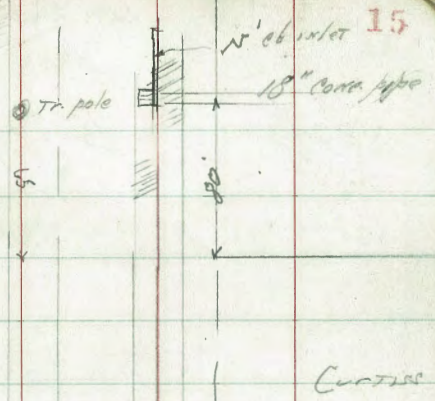 15
cb inlet
18" conc. pipe
Tr. pole
80'
Curtiss